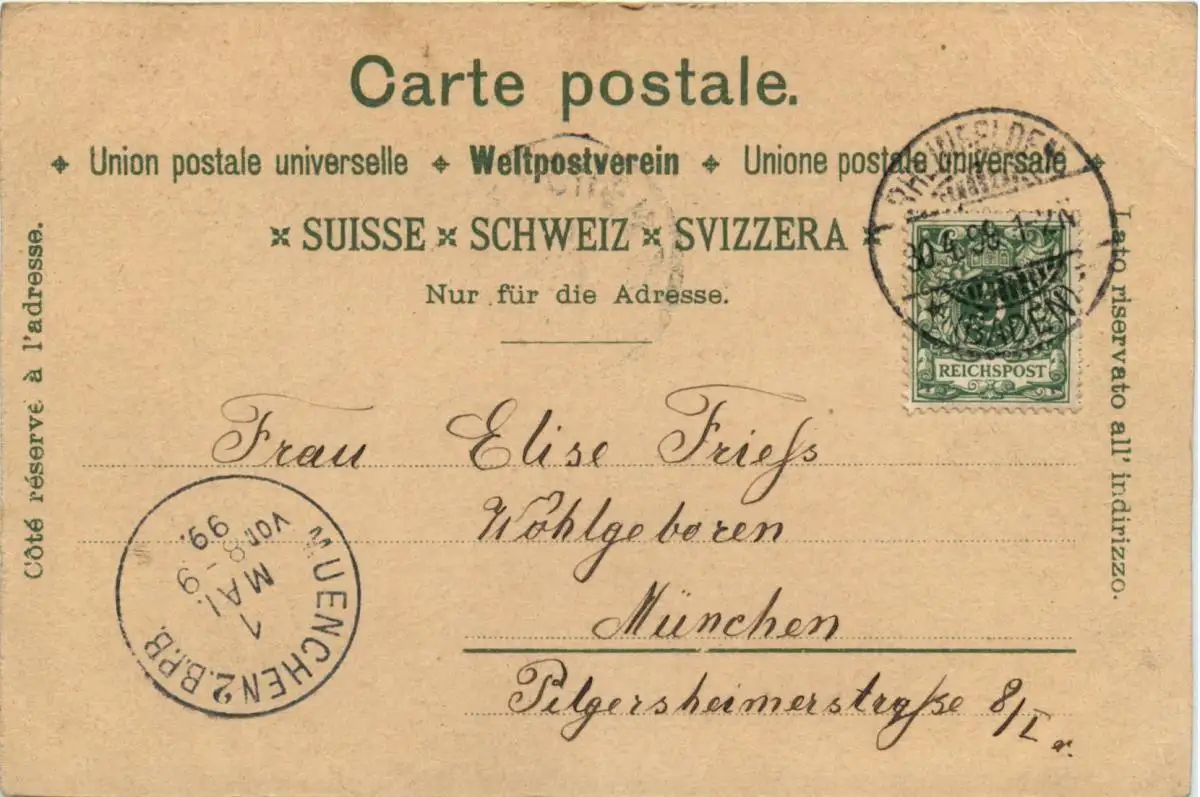 Carte postale.
Union postale universelle Weltpostverein Unione postale universale
SUISSE SCHWEIZ SVIZZERA
Nur für die Adresse.
Côté réservé à l'adresse.
Lato riservato all' indirizzo.
RHEINFELDEN
30.4.99. 1-2N
(BADEN)
REICHSPOST
Frau Elise Friess
Wohlgeboren
München
Pilgersheimerstraße 8/I r.
MUENCHEN 2.B.P.B.
1
MAI.
8-9
VOR.
99.